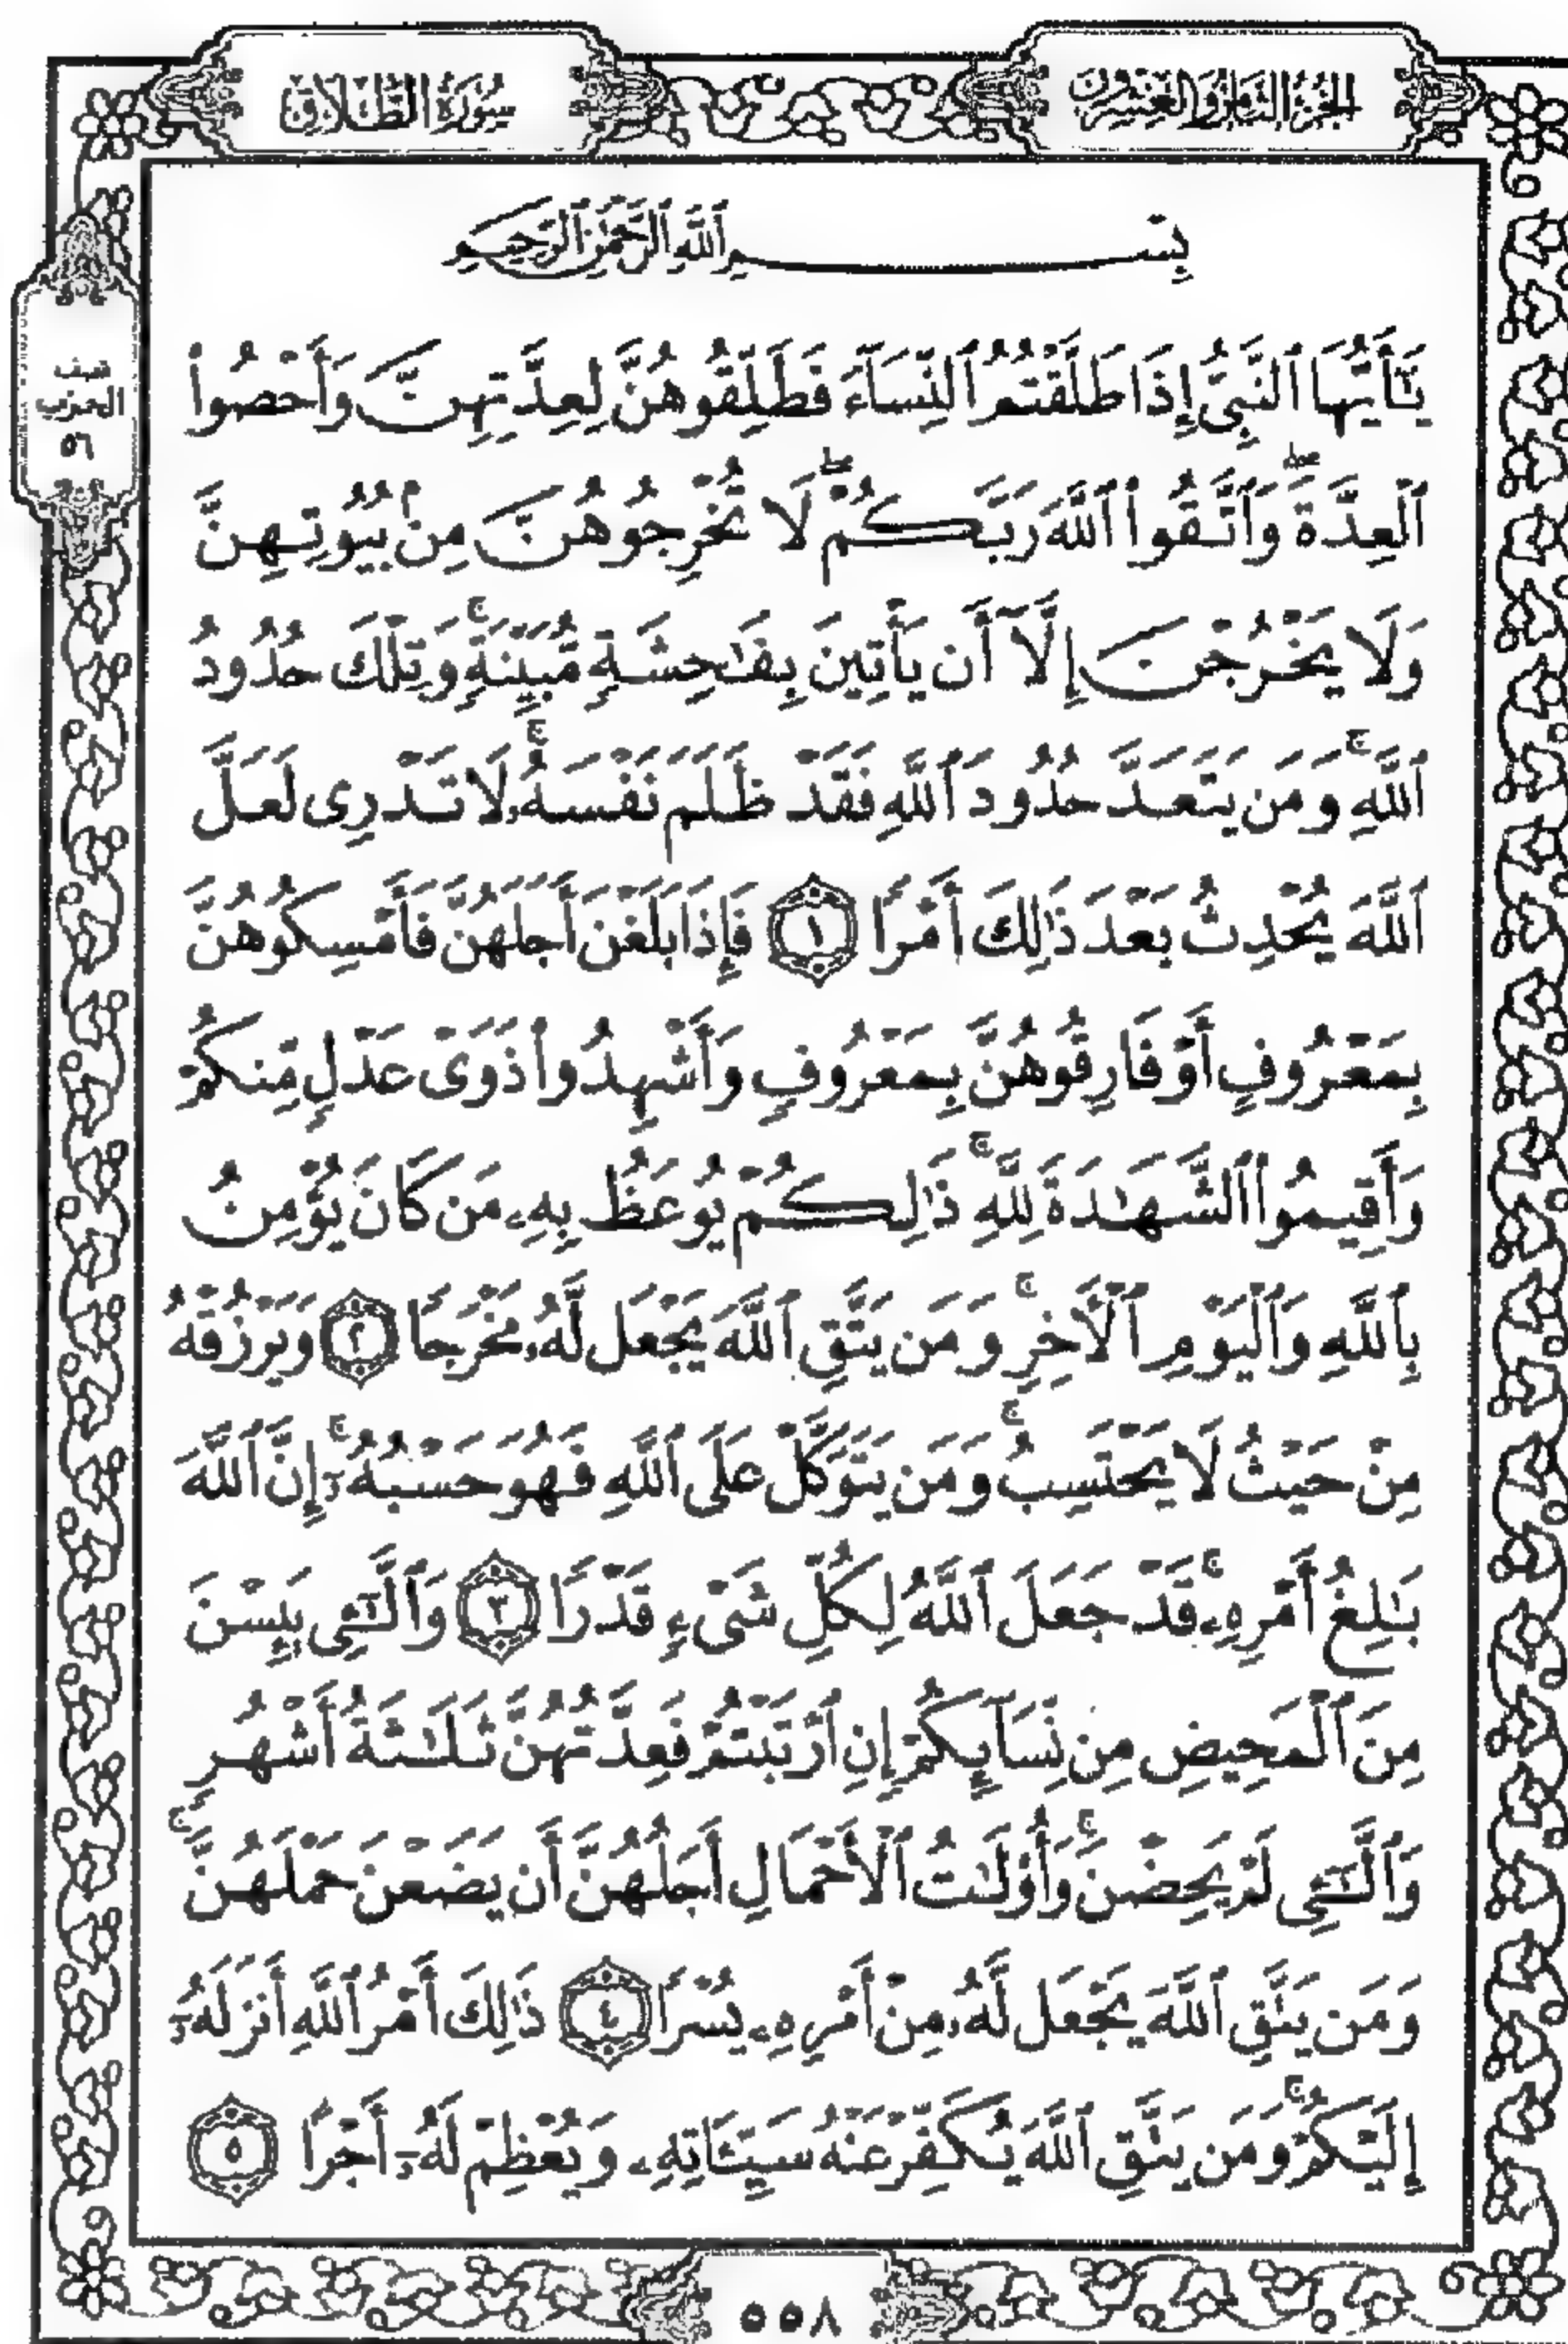 الجزء الثامن والعشرون
سورة الطلاق
بِسْمِ ٱللَّهِ ٱلرَّحْمَٰنِ ٱلرَّحِيمِ
نصف
الحزب
٥٦
يَٰٓأَيُّهَا ٱلنَّبِىُّ إِذَا طَلَّقْتُمُ ٱلنِّسَآءَ فَطَلِّقُوهُنَّ لِعِدَّتِهِنَّ وَأَحْصُوا۟
ٱلْعِدَّةَ ۖ وَٱتَّقُوا۟ ٱللَّهَ رَبَّكُمْ ۖ لَا تُخْرِجُوهُنَّ مِنۢ بُيُوتِهِنَّ
وَلَا يَخْرُجْنَ إِلَّآ أَن يَأْتِينَ بِفَٰحِشَةٍ مُّبَيِّنَةٍ ۚ وَتِلْكَ حُدُودُ
ٱللَّهِ ۚ وَمَن يَتَعَدَّ حُدُودَ ٱللَّهِ فَقَدْ ظَلَمَ نَفْسَهُۥ ۚ لَا تَدْرِى لَعَلَّ
ٱللَّهَ يُحْدِثُ بَعْدَ ذَٰلِكَ أَمْرًا ١ فَإِذَا بَلَغْنَ أَجَلَهُنَّ فَأَمْسِكُوهُنَّ
بِمَعْرُوفٍ أَوْ فَارِقُوهُنَّ بِمَعْرُوفٍ وَأَشْهِدُوا۟ ذَوَىْ عَدْلٍ مِّنكُمْ
وَأَقِيمُوا۟ ٱلشَّهَٰدَةَ لِلَّهِ ۚ ذَٰلِكُمْ يُوعَظُ بِهِۦ مَن كَانَ يُؤْمِنُ
بِٱللَّهِ وَٱلْيَوْمِ ٱلْءَاخِرِ ۚ وَمَن يَتَّقِ ٱللَّهَ يَجْعَل لَّهُۥ مَخْرَجًا ٢ وَيَرْزُقْهُ
مِنْ حَيْثُ لَا يَحْتَسِبُ ۚ وَمَن يَتَوَكَّلْ عَلَى ٱللَّهِ فَهُوَ حَسْبُهُۥٓ ۚ إِنَّ ٱللَّهَ
بَٰلِغُ أَمْرِهِۦ ۚ قَدْ جَعَلَ ٱللَّهُ لِكُلِّ شَىْءٍ قَدْرًا ٣ وَٱلَّٰٓـِٔى يَئِسْنَ
مِنَ ٱلْمَحِيضِ مِن نِّسَآئِكُمْ إِنِ ٱرْتَبْتُمْ فَعِدَّتُهُنَّ ثَلَٰثَةُ أَشْهُرٍ
وَٱلَّٰٓـِٔى لَمْ يَحِضْنَ ۚ وَأُو۟لَٰتُ ٱلْأَحْمَالِ أَجَلُهُنَّ أَن يَضَعْنَ حَمْلَهُنَّ ۚ
وَمَن يَتَّقِ ٱللَّهَ يَجْعَل لَّهُۥ مِنْ أَمْرِهِۦ يُسْرًا ٤ ذَٰلِكَ أَمْرُ ٱللَّهِ أَنزَلَهُۥٓ
إِلَيْكُمْ ۚ وَمَن يَتَّقِ ٱللَّهَ يُكَفِّرْ عَنْهُ سَيِّـَٔاتِهِۦ وَيُعْظِمْ لَهُۥٓ أَجْرًا ٥
٥٥٨